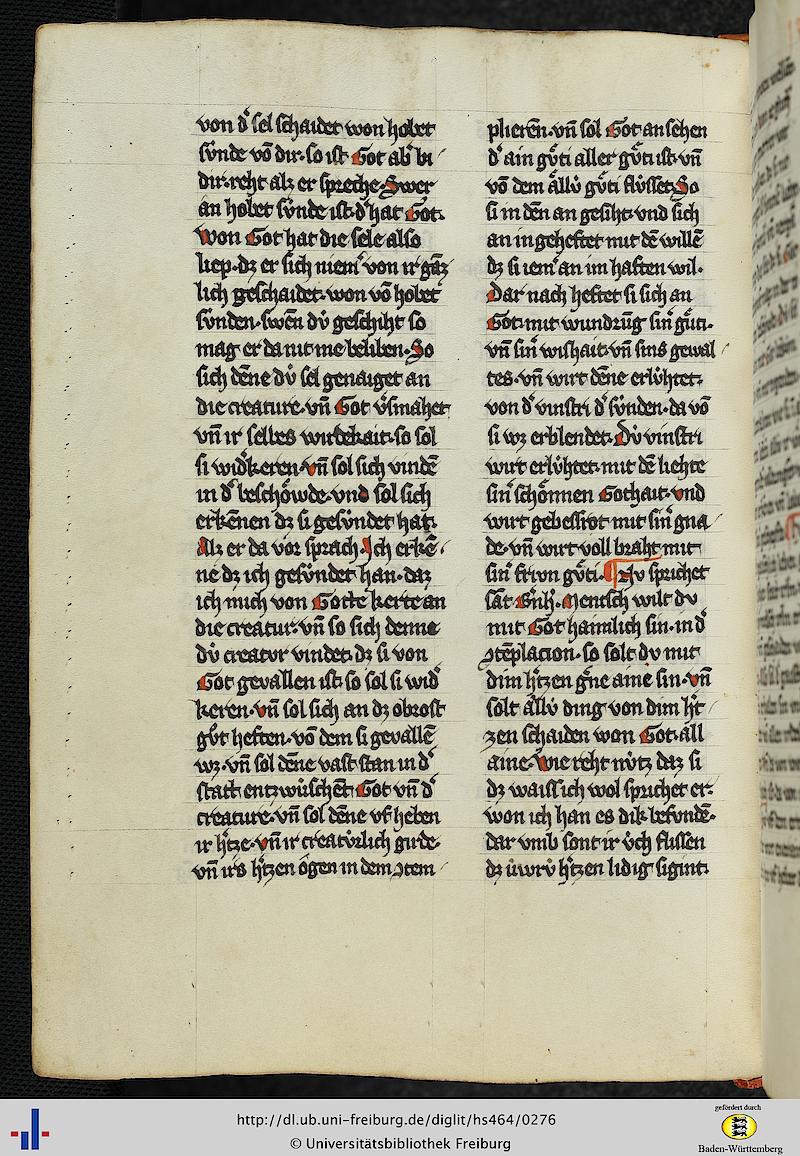 von d᷑ sel schaidet won hobet
sv̍nde vō dir. so ist Got ab᷑ bi
dir. reht alz er spreche. Swer
an hobet sv̍nde ist. d᷑ hat Got.
Won Got hat die sele also
liep. dz er sich niem᷑ von ir gāz
lich geschaidet. won vō hobet
sv̍nden. swēn dv̍ geschiht so
mag er da nit me beliben. So
sich dēne dv̍ sel genaiget an
die creature. vn̄ Got v᷑smahet
vn̄ ir selbes wirdekait. so sol
si wid᷑keren. vn̄ sol sich vindē
in d᷑ beschŏwde. vnd sol sich
erkēnen dz si gesv̍ndet hat.
Alz er da vor sprach. Ich erkē
ne dz ich gesv̍ndet han. daz
ich mich von Gotte kerte an
die creatur. vn̄ so sich denne
dv̍ creatvr vindet. dz si von
Got gevallen ist. so sol si wid᷑
keren. vn̄ sol sich an dz obrost
gv̊t heften. vō dem si gevallē
wz. vn̄ sol dēne vast stan in d᷑
statt entzwúschēt Got vn̄ d᷑
creature. vn̄ sol dēne vf heben
ir h᷑tze. vn̄ ir creatv̍rlich girde.
vn̄ irs h᷑tzen ŏgen in dem ꝯtem
plieren. vn̄ sol Got an sehen
d᷑ ain gv̍ti aller gv̍ti ist. vn̄
vō dem ällv̍ gv̍ti flv̍sset. So
si in dēn an gesiht. vnd sich
an in geheftet mit dē willē
dz si iem᷑ an im haften wil.
Dar nach heftet si sich an
Got. mit wundrūg sin᷑ gv̍ti.
vn̄ sin᷑ wishait. vn̄ sins gewal
tes. vn̄ wirt dēne erlv̍htet.
von d᷑ vinstri d᷑ sv̍nden. da vō
si wz erblendet. Dv̍ vinstri
wirt erlv̍htet. mit dē liehte
sin᷑ schŏnnen Gothait. vnd
wirt gebessrot mit sin᷑ gna
de. vn̄ wirt voll braht mit
sin᷑ gv̍ti. ¶ Nv sprichet
Mentsch wilt dv
mit Got haimlich sin. in d᷑
ꝯtēplacion. so solt dv mit
dim h᷑tzen g᷑ne aine sin. vn̄
solt ällv̍ ding von dim h᷑t
zen schaiden won Got. all
aine. Wie reht nv̍tz daz si
dz waiss ich wol sprichet er.
won ich han es dik befvndē.
dar vmb sont ir v̍ch flissen
dz úwrv̍ h᷑tzen lidig sigint.
http://dl.ub.uni-freiburg.de/diglit/hs464/0276
© Universitätsbibliothek Freiburg
gefördert durch
Baden-Württemberg